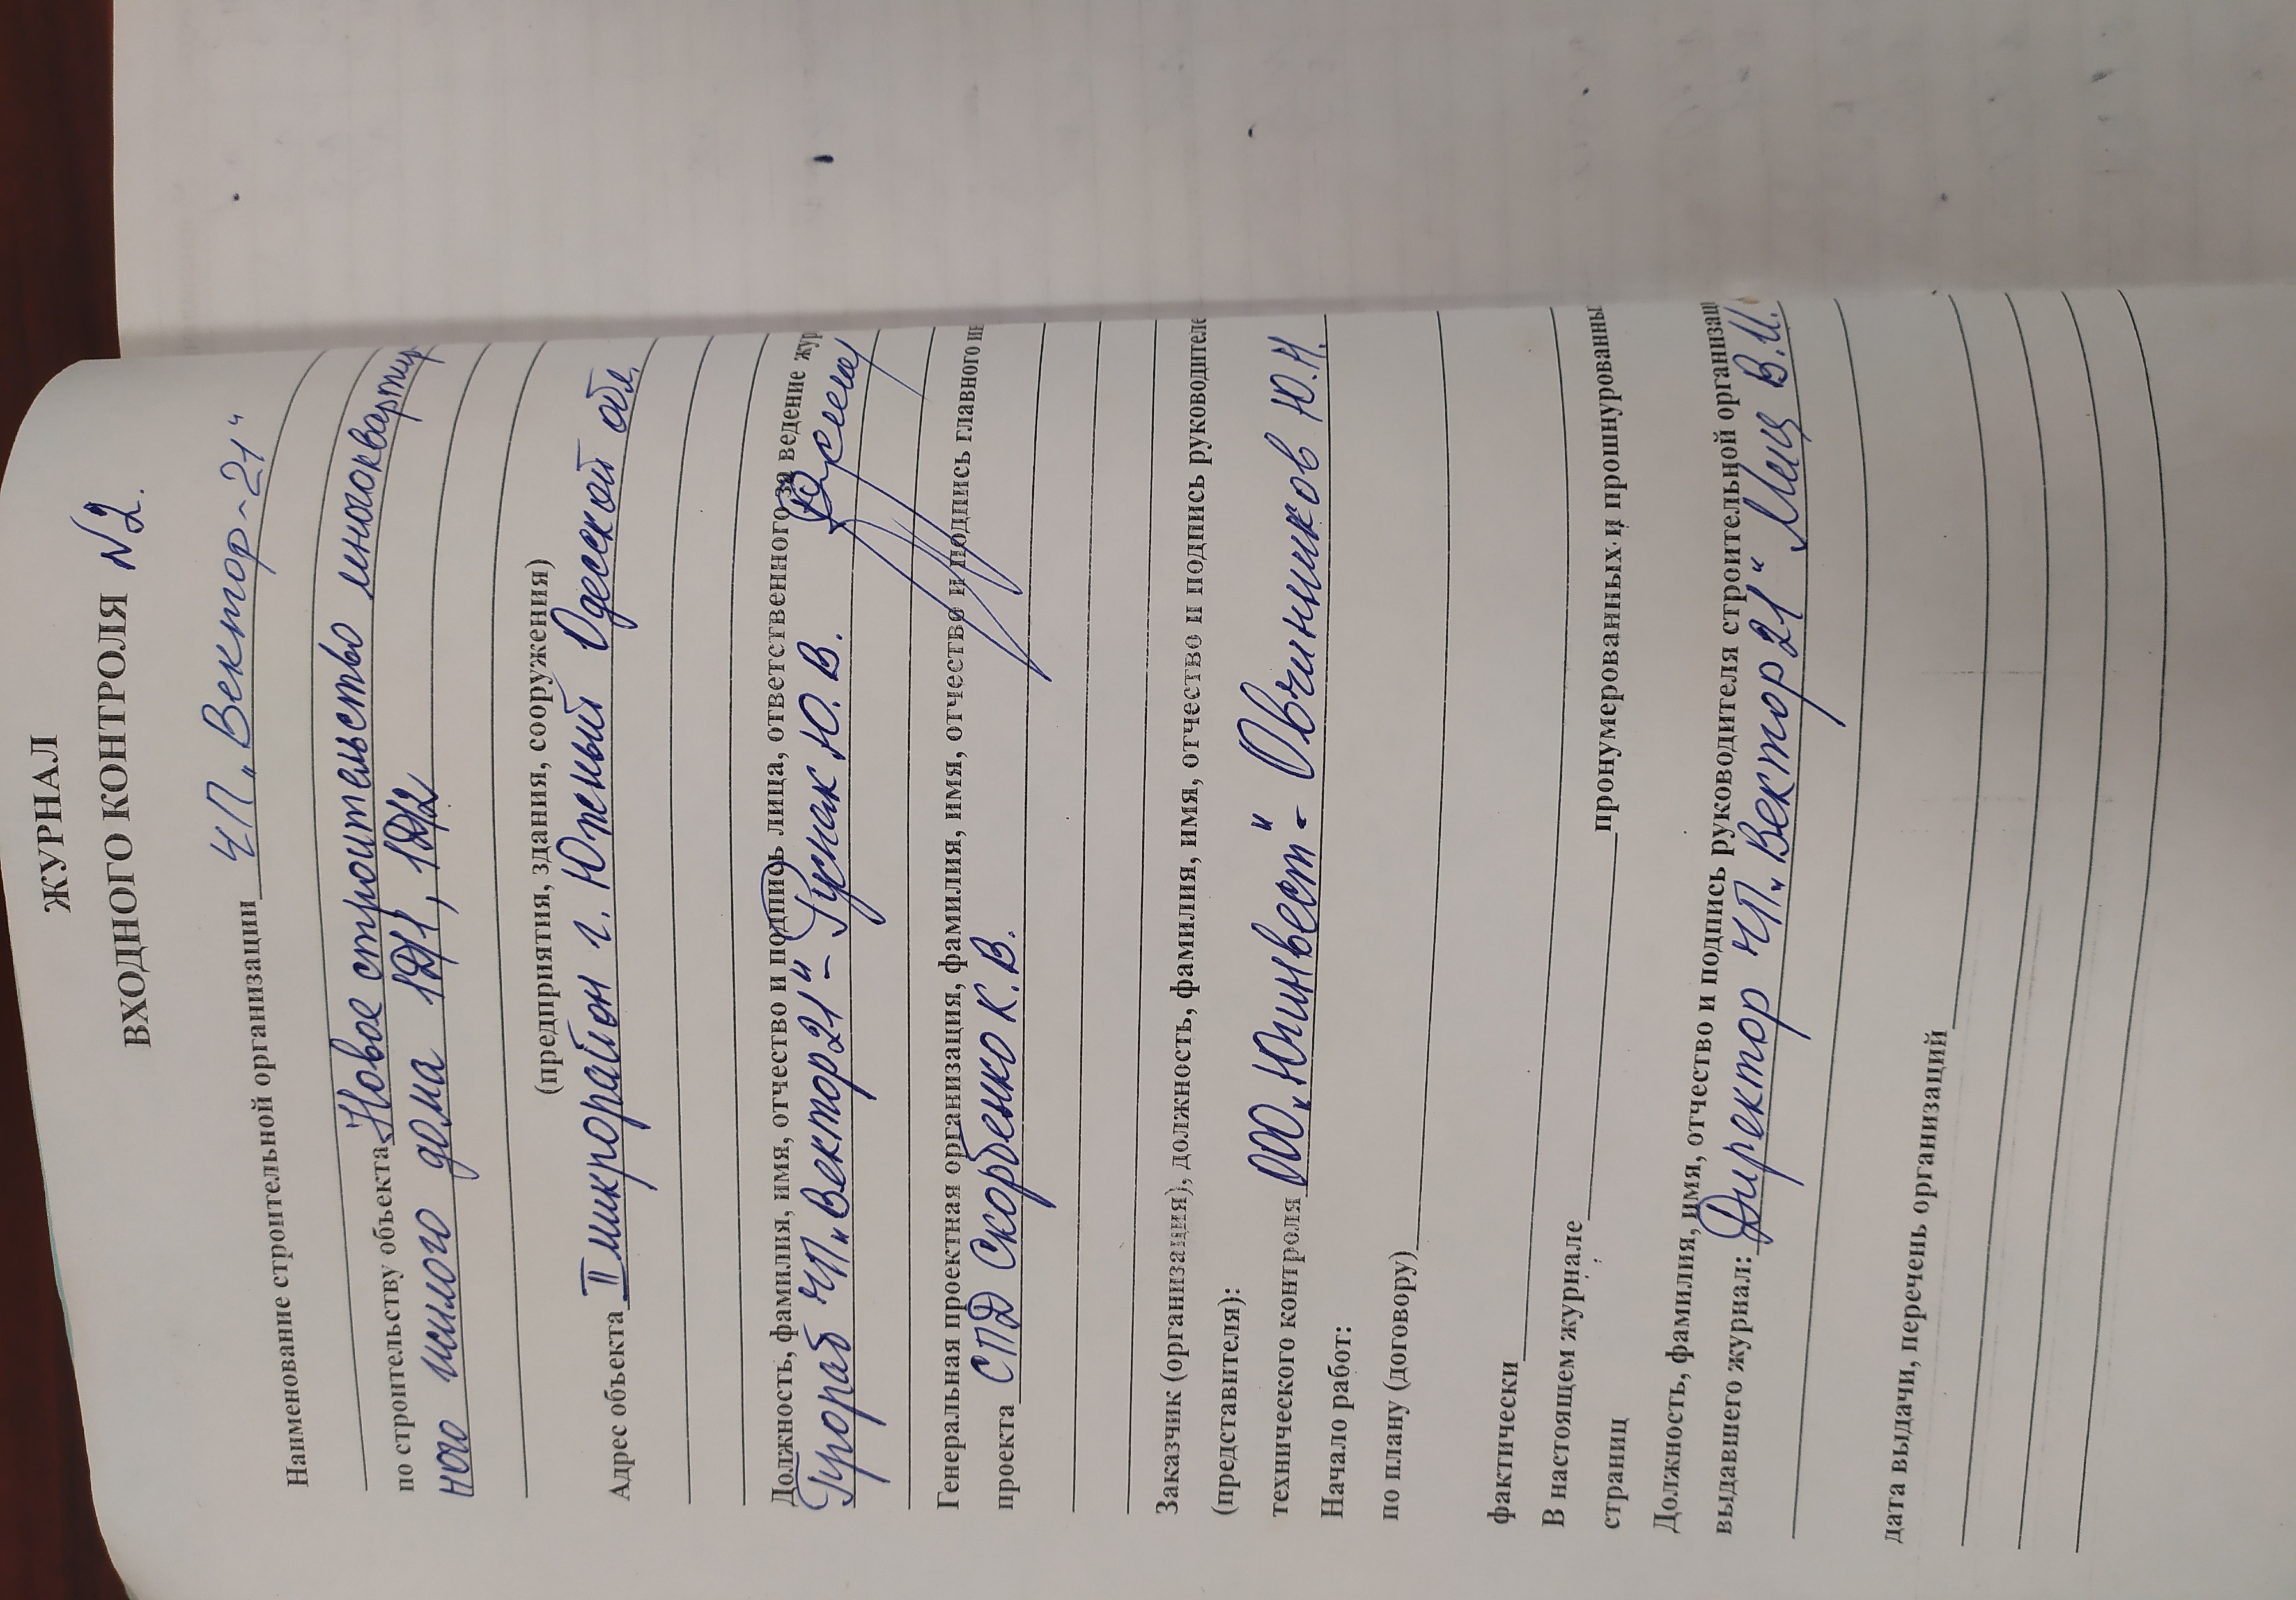 ЖУРНАЛ
ВХОДНОГО КОНТРОЛЯ №2.
Наименование строительной организации ЧП „Вектор-21"
по строительству объекта Новое строительство многоквартир
ного жилого дома
(предприятия, здания, сооружения)
Адрес объекта II микрорайон г. Южный Одесской обл.
Должность, фамилия, имя, отчество и подпись лица, ответственного за ведение жур
Прораб ЧП „Вектор21" - Гуснак Ю.В.
Генеральная проектная организация, фамилия, имя, отчество и подпись главного ин
проекта СПД Скорбенко К.В.
Заказчик (организация), должность, фамилия, имя, отчество и подпись руководителе
(представителя):
технического контроля ООО „Югинвест" - Овчинников Ю.Н.
Начало работ:
по плану (договору)
фактически
В настоящем журнале пронумерованных и прошнурованны
страниц
Должность, фамилия, имя, отчество и подпись руководителя строительной организац
выдавшего журнал: Директор ЧП „Вектор21" Миц В.И.
дата выдачи, перечень организаций